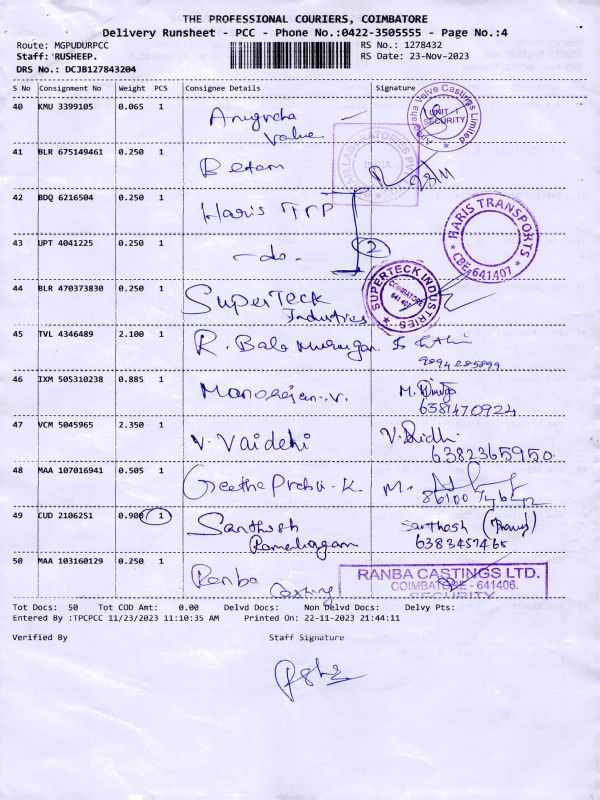 THE PROFESSIONAL COURIERS, COIMBATORE
Delivery Runsheet - PCC - Phone No.:0422-3505555 - Page No.:4
Route: MGPUDURPCC
RS No.: 1278432
Staff: RUSHEEP.
RS Date: 23-Nov-2023
DRS No.: DCJB127843204
S No Consignment No Weight PCS Consignee Details Signature
40 KMU 3399105 0.065 1 Anugraha
Value
Anugraha Valve Castings Limited
UNIT-1
SECURITY
41 BLR 675149461 0.250 1
23/11
42 BDQ 6216504 0.250 1 Haris TPP
HARIS TRANSPORTS
CBE-641407
43 UPT 4041225 0.250 1 -do- 2
44 BLR 470373830 0.250 1 SuperTeck
Industries
SUPERTECK INDUSTRIES
COIMBATORE
45 TVL 4346489 2.100 1 R. Bala Murugan
46 IXM 505310238 0.885 1 Manorajan.V. M.
6381470924
47 VCM 5045965 2.350 1 V. Vaidehi V. Ridhi
6382365950
48 MAA 107016941 0.505 1 Geetha Prabu. K M.
49 CUD 2106251 0.900 1 Santhosh Santhosh
6383457465
50 MAA 103160129 0.250 1 Ranba
Casting
RANBA CASTINGS LTD.
COIMBATORE - 641406.
SECURITY
Tot Docs: 50 Tot COD Amt: 0.00 Delvd Docs: Non Delvd Docs: Delvy Pts:
Entered By :TPCPCC 11/23/2023 11:10:35 AM Printed On: 22-11-2023 21:44:11
Verified By Staff Signature